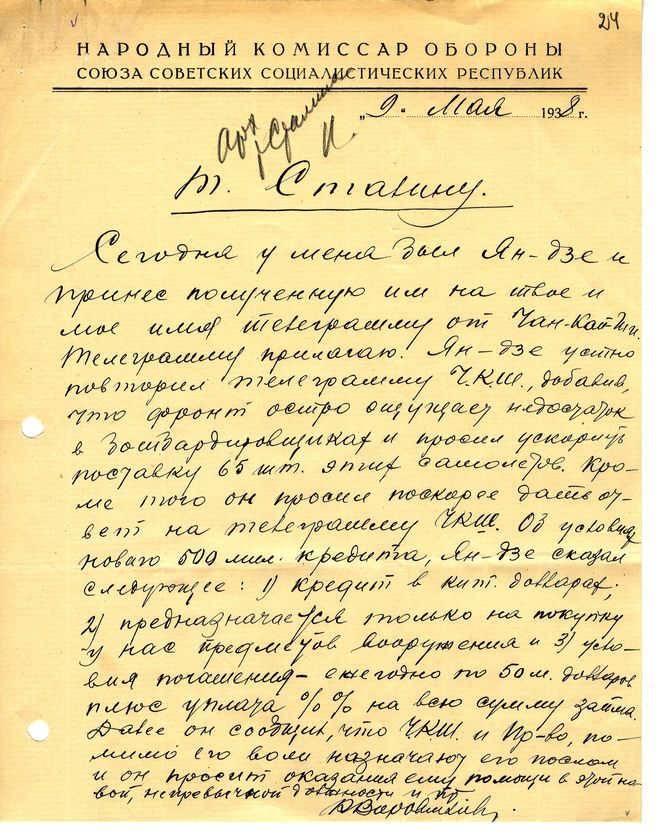 24
НАРОДНЫЙ КОМИССАР ОБОРОНЫ
СОЮЗА СОВЕТСКИХ СОЦИАЛИСТИЧЕСКИХ РЕСПУБЛИК
„9“ Мая 1938 г.
Арх
Сталина
т. Сталину.
Сегодня у меня был Ян-дзе и
принес полученную им на твое и
мое имя телеграмму от Чан-Кай-Ши.
Телеграмму прилагаю. Ян-дзе устно
повторил телеграмму Ч.К.Ш., добавив,
что фронт остро ощущает недостаток
в бомбардировщиках и просил ускорить
поставку 65 шт. этих самолетов. Кро-
ме того он просил поскорее дать от-
вет на телеграмму ЧКШ. Об условиях
нового 500 мил. кредита, Ян-дзе сказал
следующее: 1) кредит в кит. долларах;
2) предназначается только на покупку
у нас предметов вооружения и 3) усло-
вия погашения – ежегодно по 50 м. долларов
плюс уплата %% на всю сумму займа.
Далее он сообщил, что ЧКШ. и Пр-во, по-
мимо его воли назначают его послом
и он просит оказания ему помощи в этой но-
вой, непривычной должности и пр.
КВорошилов.